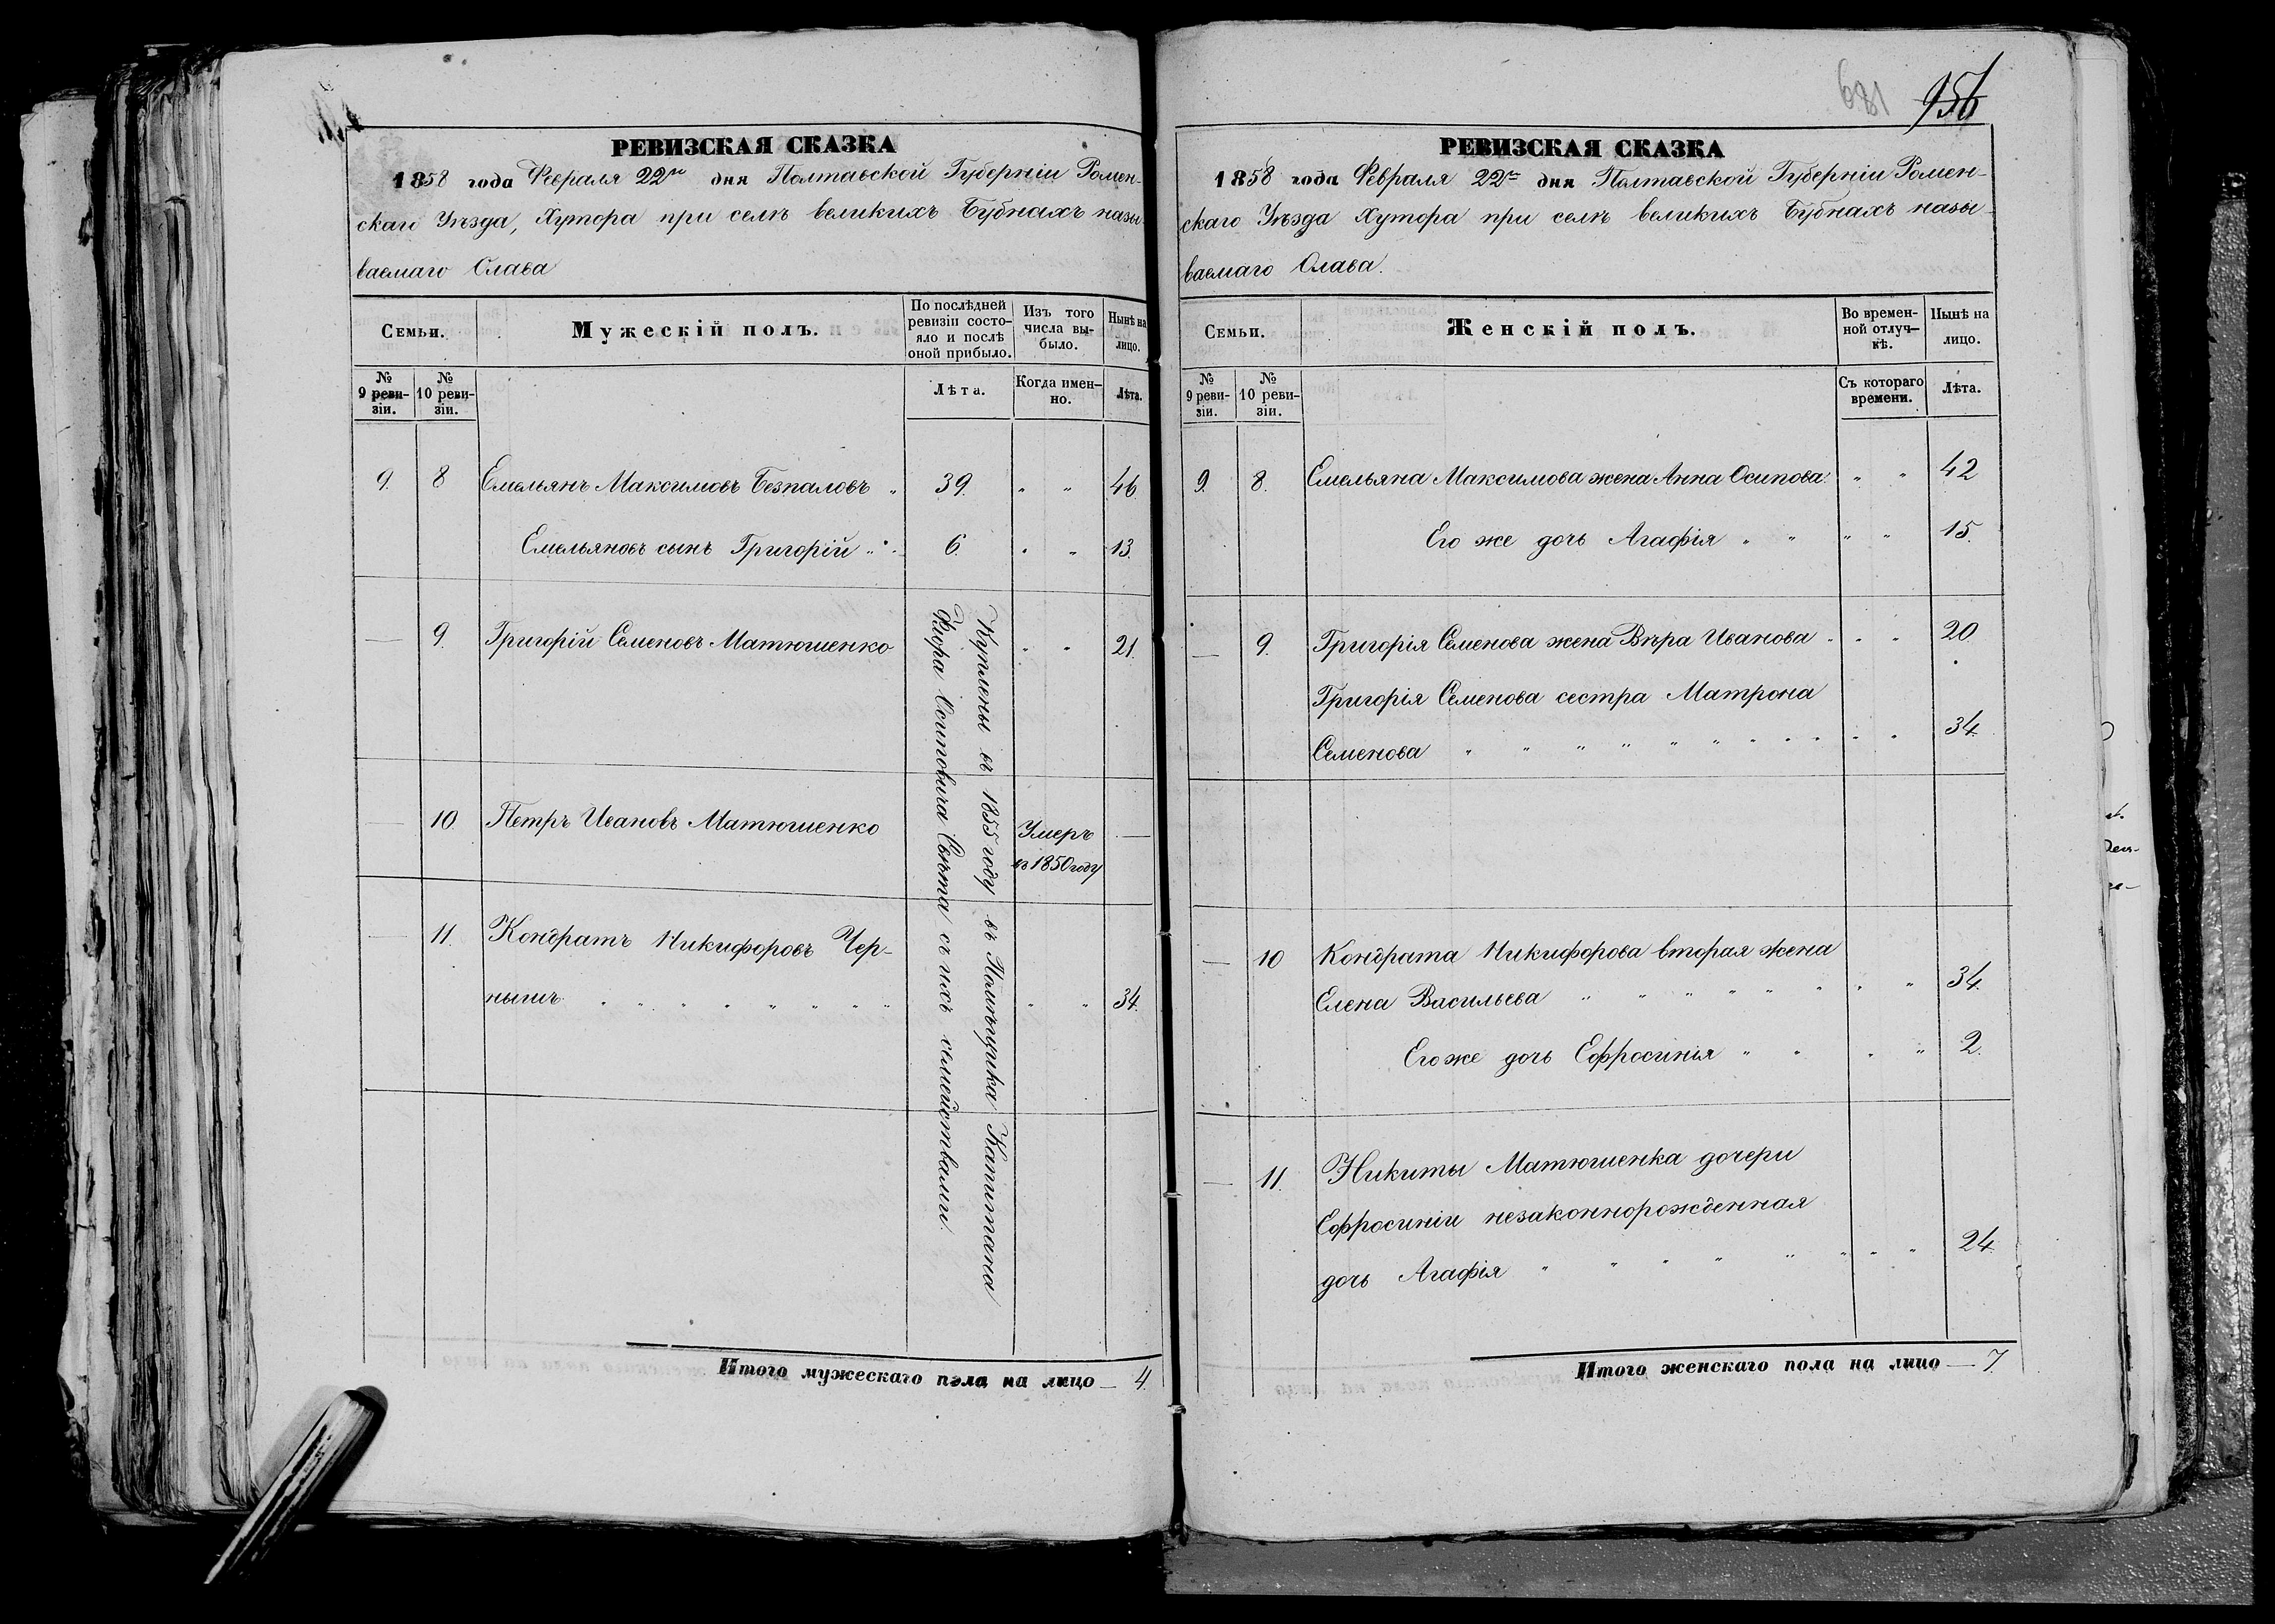 РЕВИЗСКАЯ СКАЗКА
1858 года Февраля 22го дня Полтавской Губерніи Ромен-
скаго Уѣзда, Хутора при селѣ Великихъ Бубнахъ назы-
ваемаго Слава
Семьи.
Мужескій полъ.
По послѣдней ревизіи состо-яло и послѣ оной прибыло.
Изъ того числа вы-было.
Нынѣ на лицо.
№ 9 реви-зіи.
№ 10 реви-зіи.
Лѣта.
Когда имен-но.
Лѣта.
9. 8 Емельянъ Максимовъ Безпаловъ " 39. " " 46
Емельяновъ сынъ Григорій " " 6. " " 13.
— 9. Григорій Семеновъ Матюшенко " " 21.
— 10. Петръ Ивановъ Матюшенко Умеръ —
въ 1850 году
— 11. Кондратъ Никифоровъ Чер-
нышъ " " " " " " " " " 34.
Куплены въ 1855 году въ Помѣщика Капитана
Осиповича съ ихъ семействами
Итого мужескаго пола на лицо — 4.
681 956
РЕВИЗСКАЯ СКАЗКА
1858 года Февраля 22го дня Полтавской Губерніи Ромен-
скаго Уѣзда Хутора при селѣ Великихъ Бубнахъ назы-
ваемаго Слава.
Семьи.
Женскій полъ.
Во времен-ной отлуч-кѣ.
Нынѣ на лицо.
№ 9 реви-зіи.
№ 10 реви-зіи.
Съ котораго времени.
Лѣта.
9. 8. Емельяна Максимова жена Анна Осипова " " 42
Его же дочь Агафія " " " " 15.
— 9. Григорія Семенова жена Вѣра Иванова " " " 20.
Григорія Семенова сестра Матрона
Семенова " " " " " " " " " " " 34.
— 10 Кондрата Никифорова вторая жена
Елена Васильева " " " " " " " " 34.
Его же дочь Ефросинія " " " " 2.
— 11. Никиты Матюшенка дочери
Ефросиніи незаконнорожденная
дочь Агафія " " " " " " " " 24.
Итого женскаго пола на лицо — 7.